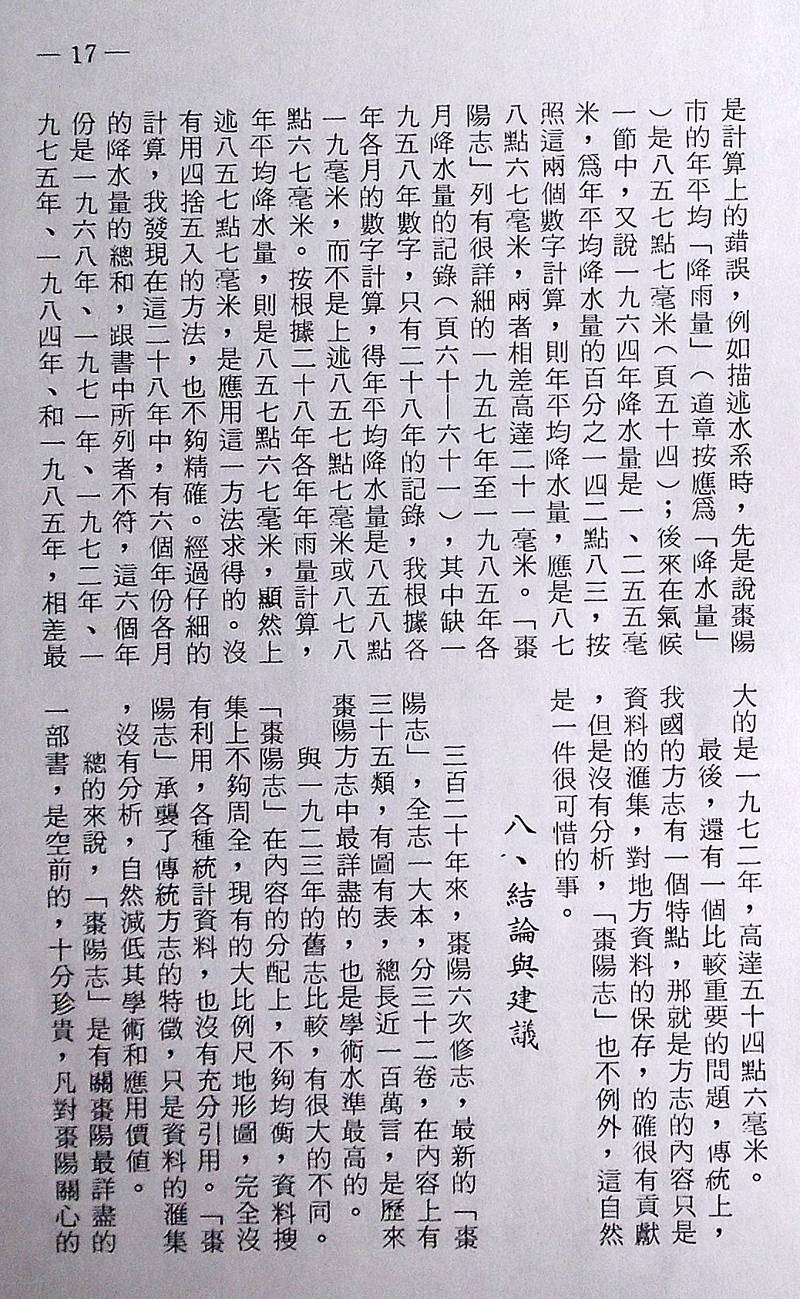 — 17 —
是計算上的錯誤，例如描述水系時，先是說棗陽
市的年平均「降雨量」（道章按應爲「降水量」
）是八五七點七毫米（頁五十四）；後來在氣候
一節中，又說一九六四年降水量是一、二五五毫
米，爲年平均降水量的百分之一四二點八三，按
照這兩個數字計算，則年平均降水量，應是八七
八點六七毫米，兩者相差高達二十一毫米。「棗
陽志」列有很詳細的一九五七年至一九八五年各
月降水量的記錄（頁六十—六十一），其中缺一
九五八年數字，只有二十八年的記錄，我根據各
年各月的數字計算，得年平均降水量是八五八點
一九毫米，而不是上述八五七點七毫米或八七八
點六七毫米。按根據二十八年各年年雨量計算，
年平均降水量，則是八五七點六七毫米，顯然上
述八五七點七毫米，是應用這一方法求得的。沒
有用四捨五入的方法，也不夠精確。經過仔細的
計算，我發現在這二十八年中，有六個年份各月
的降水量的總和，跟書中所列者不符，這六個年
份是一九六八年、一九七一年、一九七二年、一
九七五年、一九八四年、和一九八五年，相差最
大的是一九七二年，高達五十四點六毫米。
最後，還有一個比較重要的問題，傳統上，
我國的方志有一個特點，那就是方志的內容只是
資料的滙集，對地方資料的保存，的確很有貢獻
，但是沒有分析，「棗陽志」也不例外，這自然
是一件很可惜的事。
八、結論與建議
三百二十年來，棗陽六次修志，最新的「棗
陽志」，全志一大本，分三十二卷，在內容上有
三十五類，有圖有表，總長近一百萬言，是歷來
棗陽方志中最詳盡的，也是學術水準最高的。
與一九二三年的舊志比較，有很大的不同。
「棗陽志」在內容的分配上，不夠均衡，資料搜
集上不夠周全，現有的大比例尺地形圖，完全沒
有利用，各種統計資料，也沒有充分引用。「棗
陽志」承襲了傳統方志的特徵，只是資料的滙集
，沒有分析，自然減低其學術和應用價值。
總的來說，「棗陽志」是有關棗陽最詳盡的
一部書，是空前的，十分珍貴，凡對棗陽關心的